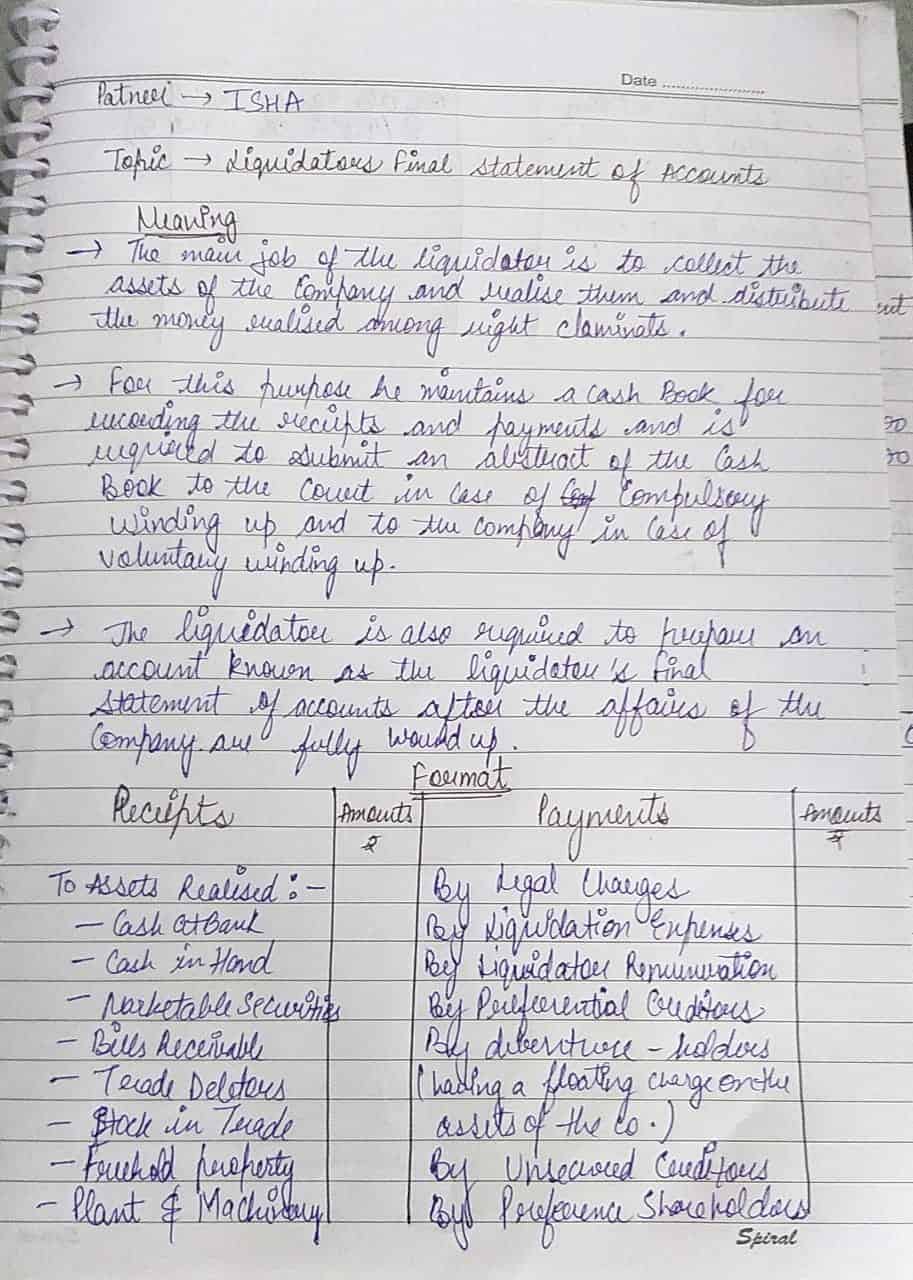 Date ........................
Patneer → ISHA
Topic → Liquidators Final Statement of Accounts
Meaning
→ The main job of the liquidator is to collect the
assets of the Company and realise them and distribute
the money realised among right claminats.
→ For this purpose he maintains a Cash Book for
recording the reciepts and payments and is
required to submit an abstract of the Cash
Book to the Court in Case of Compulsory
Winding up and to the company in Case of
Voluntary winding up.
→ The liquidator is also required to prepare an
account known as the liquidator's final
statement of accounts after the affairs of the
Company are fully wound up.
Format
Reciepts Amouts ₹ Payments Amouts ₹
To Assets Realised :- By Legal Charges
- Cash at Bank By Liquidation Expenses
- Cash in Hand By Liquidator Remunuration
- Marketable Securities By Preferential Creditors
- Bills Receivable By debenture - holders
- Trade Debtors (having a floating charge on the
- Stock in Trade assets of the co.)
- Freehold property By Unsecured Creditors
- Plant & Machinary By Preference Shareholders
Spiral